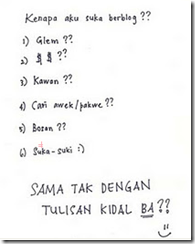 Kenapa aku suka berblog ??
1) Glem ??
2) $ $ ??
3) Kawan ??
4) Cari awek/pakwe ??
5) Bosan ??
6) Suka-suki :)
SAMA TAK DENGAN
TULISAN KIDAL BA ??